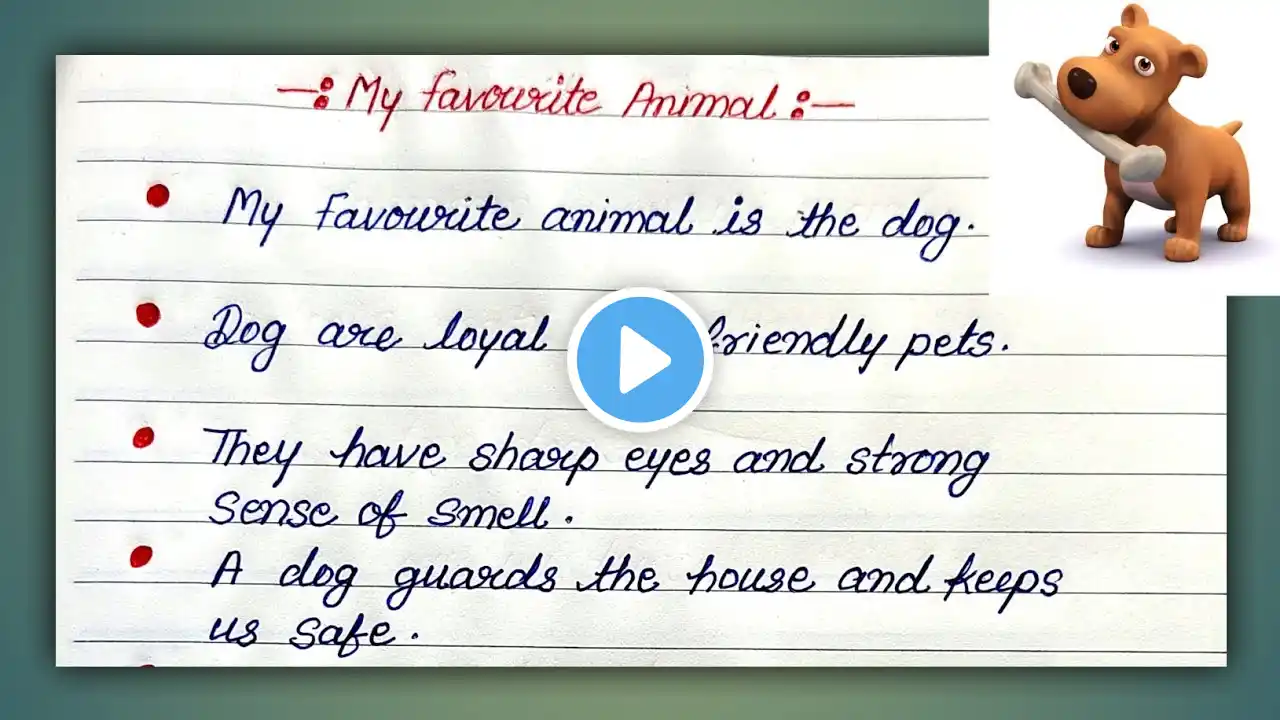 —: My favourite Animal :—
• My favourite animal is the dog.
• Dog are loyal friendly pets.
• They have sharp eyes and strong
sense of smell.
• A dog guards the house and keeps
us safe.